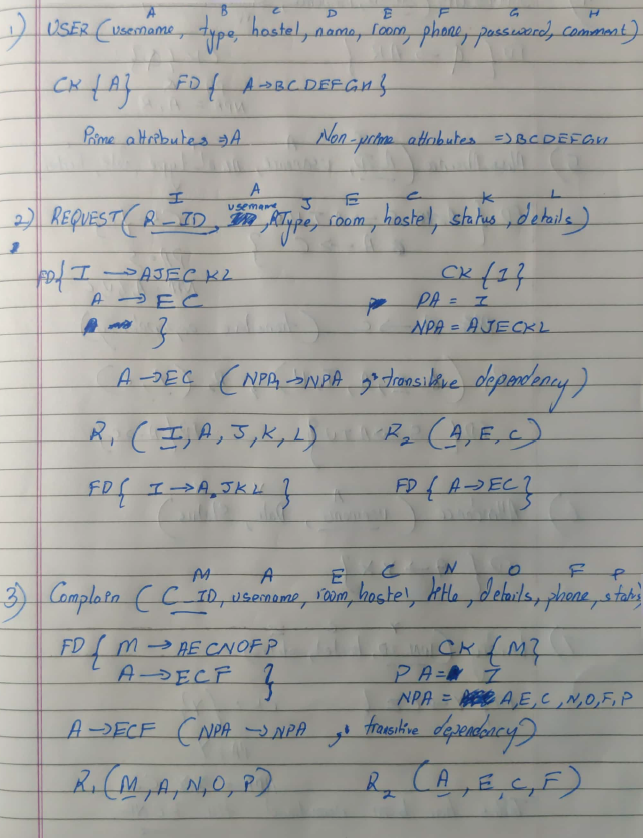 A B C D E F G H
1) USER (username, type, hostel, name, room, phone, password, comment)
CK {A} FD { A→BCDEFGH}
Prime attributes ⇒A Non-prime attributes ⇒BCDEFGH
I A J E C K L
username
2) REQUEST( R_ID, RType, room, hostel, status, details)
FD{ I → AJECKL CK {I}
A → EC PA = I
} NPA = AJECKL
A → EC (NPA → NPA ∴ transitive dependency)
R1 (I, A, J, K, L) R2 (A, E, C)
FD{ I → A,JKL } FD { A→EC}
M A E C N O F P
3) Complain (C_ID, username, room, hostel, title, details, phone, status)
FD { M → AECNOFP CK {M}
A → ECF } PA= I
NPA = A, E, C, N, O, F, P
A→ECF (NPA → NPA ∴ transitive dependency)
R1 (M, A, N, O, P) R2 (A, E, C, F)